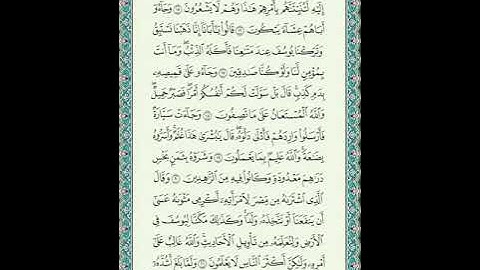 إِلَيْهِ لَتُنَبِّئَنَّهُم بِأَمْرِهِمْ هَٰذَا وَهُمْ لَا يَشْعُرُونَ ۝١٥ وَجَاءُو
أَبَاهُمْ عِشَاءً يَبْكُونَ ۝١٦ قَالُوا يَا أَبَانَا إِنَّا ذَهَبْنَا نَسْتَبِقُ
وَتَرَكْنَا يُوسُفَ عِندَ مَتَاعِنَا فَأَكَلَهُ الذِّئْبُ وَمَا أَنتَ
بِمُؤْمِنٍ لَّنَا وَلَوْ كُنَّا صَادِقِينَ ۝١٧ وَجَاءُو عَلَىٰ قَمِيصِهِ
بِدَمٍ كَذِبٍ قَالَ بَلْ سَوَّلَتْ لَكُمْ أَنفُسُكُمْ أَمْرًا فَصَبْرٌ جَمِيلٌ
وَاللَّهُ الْمُسْتَعَانُ عَلَىٰ مَا تَصِفُونَ ۝١٨ وَجَاءَتْ سَيَّارَةٌ
فَأَرْسَلُوا وَارِدَهُمْ فَأَدْلَىٰ دَلْوَهُ قَالَ يَا بُشْرَىٰ هَٰذَا غُلَامٌ وَأَسَرُّوهُ
بِضَاعَةً وَاللَّهُ عَلِيمٌ بِمَا يَعْمَلُونَ ۝١٩ وَشَرَوْهُ بِثَمَنٍ بَخْسٍ
دَرَاهِمَ مَعْدُودَةٍ وَكَانُوا فِيهِ مِنَ الزَّاهِدِينَ ۝٢٠ وَقَالَ
الَّذِي اشْتَرَاهُ مِن مِّصْرَ لِامْرَأَتِهِ أَكْرِمِي مَثْوَاهُ عَسَىٰ
أَن يَنفَعَنَا أَوْ نَتَّخِذَهُ وَلَدًا وَكَذَٰلِكَ مَكَّنَّا لِيُوسُفَ فِي
الْأَرْضِ وَلِنُعَلِّمَهُ مِن تَأْوِيلِ الْأَحَادِيثِ وَاللَّهُ غَالِبٌ عَلَىٰ
أَمْرِهِ وَلَٰكِنَّ أَكْثَرَ النَّاسِ لَا يَعْلَمُونَ ۝٢١ وَلَمَّا بَلَغَ أَشُدَّهُ